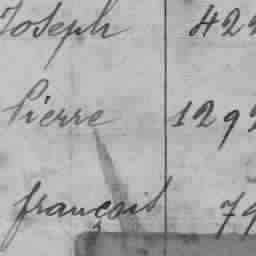 Joseph 422
Pierre 1292
françois 79